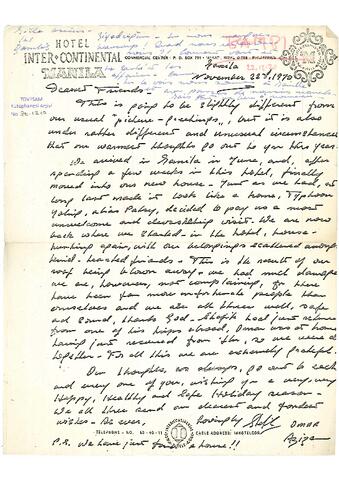 HOTEL
INTER·CONTINENTAL
MANILA
COMMERCIAL CENTER
Manila
November 22nd, 1970
Dearest Friends -
This is going to be slightly different from
our usual "picture-greetings", but it is also
under rather different and unusual circumstances
that our warmest thoughts go out to you this year.
We arrived in Manila in June, and, after
spending a few weeks in this hotel, finally
moved into our new house - Just as we had, at
long last made it look like a home, Typhoon
Yoling, alias Patsy, decided to pay us a most
unwelcome and devastating visit. We are now
back where we started - in the hotel, house-
hunting again, with our belongings scattered amongst
kind-hearted friends - This is the result of our
roof being blown away - we had much damage
we are, however, not complaining, for there
have been far more unfortunate people than
ourselves and we are all three well, safe
and sound, thanks God - had just returned
from one of his trips abroad, Omar was at home
having just returned from, so we were all
together - For all this we are extremely grateful.
Our thoughts, as always, go out to each
and every one of you, wishing you a very, very
Happy, Healthy and Safe Holiday season -
We all three send our dearest and fondest
wishes - As ever,
Lovingly
Omar
Aziza
TELEPHONE - NO. 89-40-11
CABLE ADDRESS: INHOTELCOR
P.S. We have just found a house!!